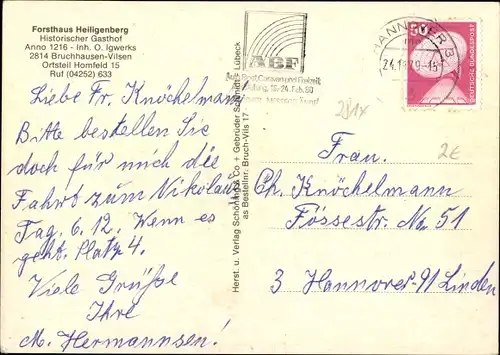 Forsthaus Heiligenberg
Historischer Gasthof
Anno 1216 - Inh. O. Igwerks
2814 Bruchhausen-Vilsen
Ortsteil Homfeld 15
Ruf (04252) 633
Liebe Fr. Knöchelmann!
Bitte bestellen Sie
doch für mich die
Fahrt zum Nikolaus
Tag. 6.12. Wenn es
geht. Platz 4.
Viele Grüße
Ihre
M. Hermannsen!
Herst. u. Verlag Schöning & Co + Gebrüder Schmidt, Lübeck
as Bestellnr. Bruch-Vils 17
ABF
Boot, Caravan und Freizeit
16.-24. Feb. 80
HANNOVER
24.11.79-15
50
DEUTSCHE BUNDESPOST
2814
2€
Frau.
Ch. Knöchelmann
Fössestr. No. 51
3 Hannover-91 Linden